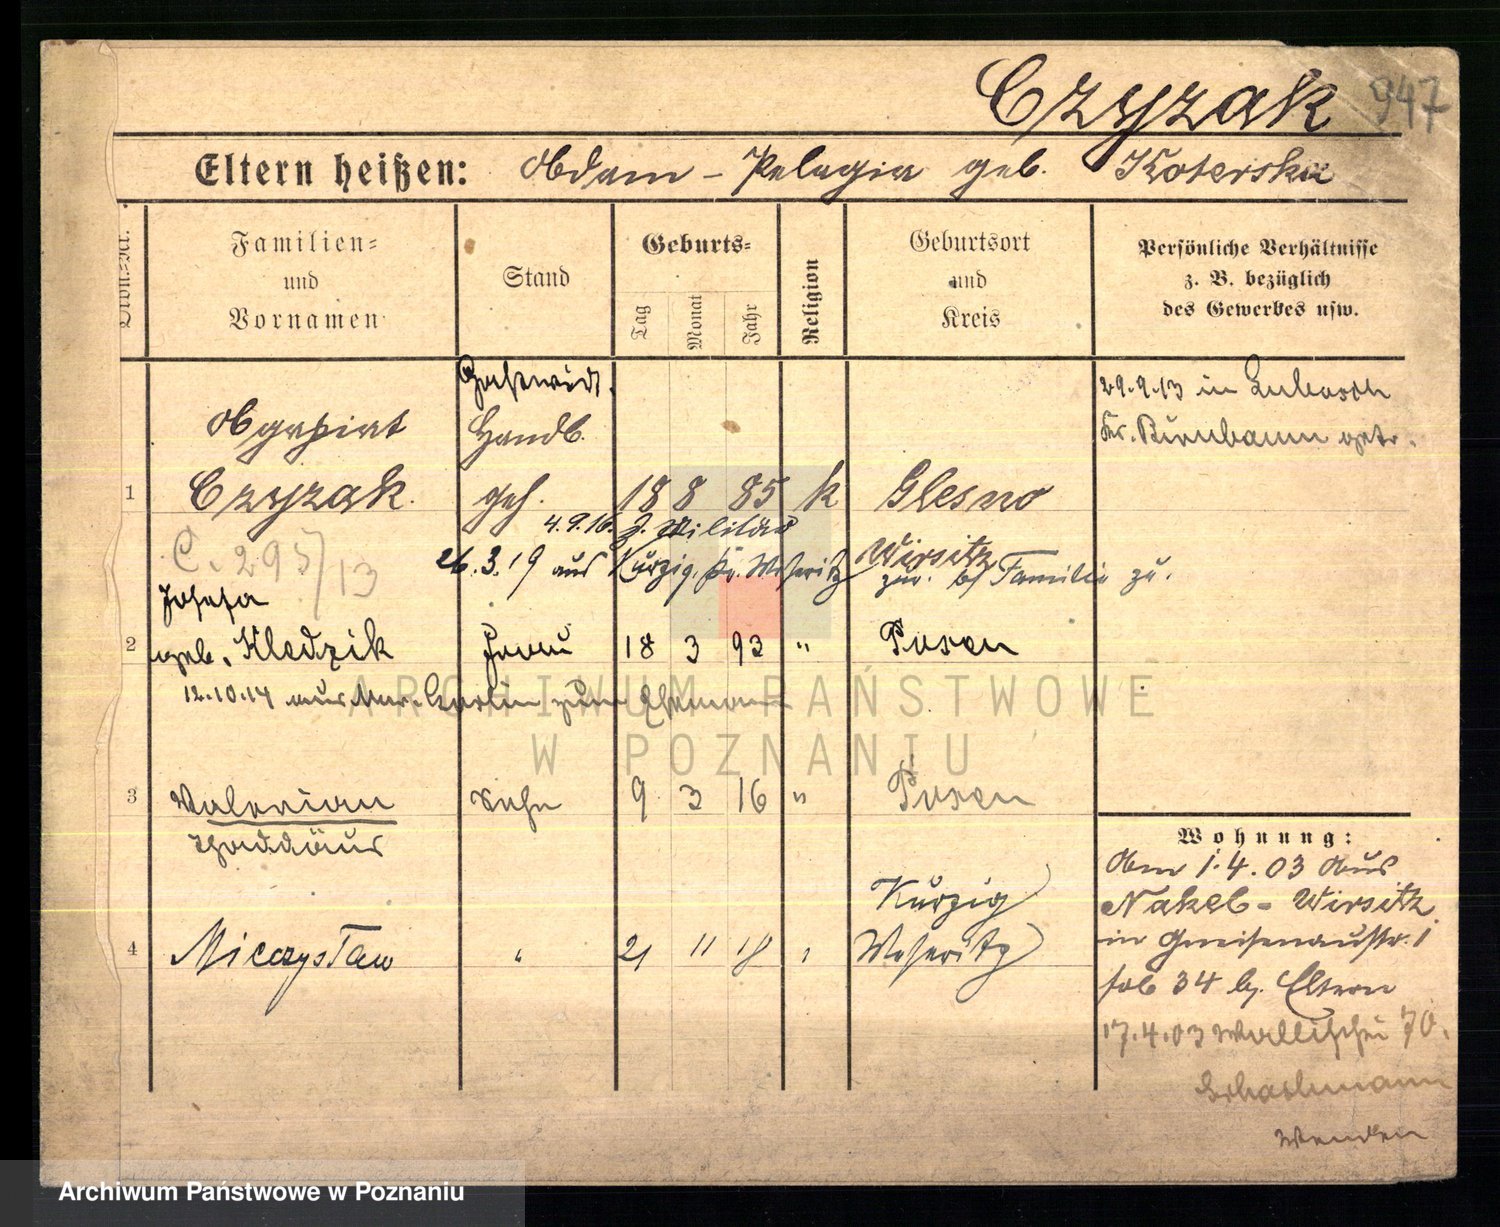 Czyzak 947
Eltern heißen: Adam - Pelagia geb. Koterska
Familien= und Vornamen
Stand
Geburts=
Tag Monat Jahr
Religion
Geburtsort und Kreis
Persönliche Verhältnisse
z. B. bezüglich
des Gewerbes usw.
Gastwirt.
Agapiat Handl.
1 Czyzak. geh. 18 8 85 k Glesno
Wirsitz
29.9.13 in Lubosch
Kr. Birnbaum getr.
C. 295/13
4.9.16. z. Militär
26.3.19 aus Kurzig, Kr. Meseritz zur. b/ Familie zu.
Josefa
2 geb. Kledzik Frau 18 3 93 " Posen
12.10.14 aus zum Ehemann
3 Valerian Sohn 9 3 16 " Posen
Thaddäus
Kurzig
4 Mieczysław " 21 11 18 " Meseritz
Wohnung:
Am 1.4.03 aus
Nakel - Wirsitz
in Gneisenaustr. 1
34 b. Eltern
17.4.03 Wallischei 70.
ARCHIWUM PAŃSTWOWE
W POZNANIU
Archiwum Państwowe w Poznaniu